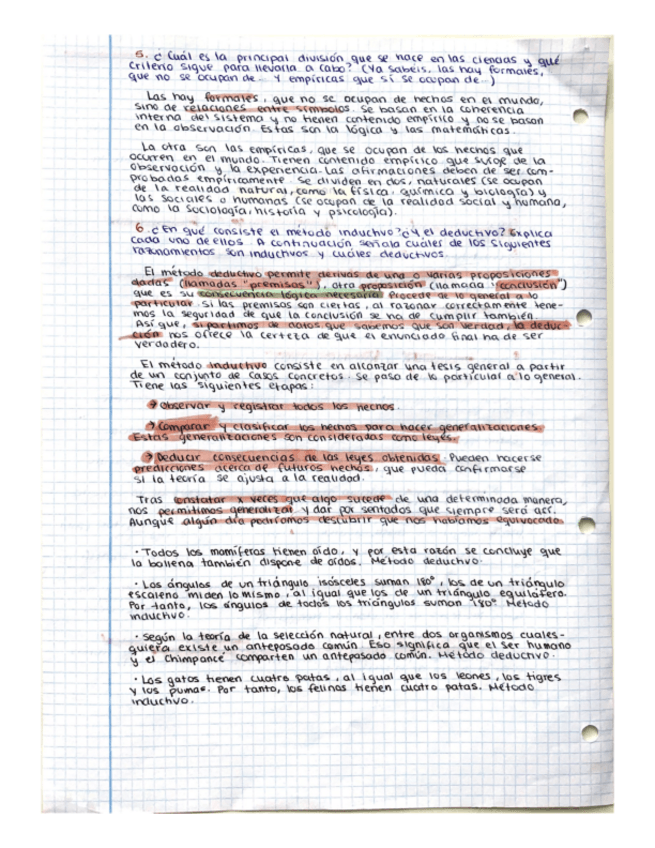 5. ¿Cuál es la principal división que se hace en las ciencias y qué
criterio sigue para llevarla a cabo? (Ya sabéis, las hay formales,
que no se ocupan de... Y empíricas que sí se ocupan de...)
Las hay formales, que no se ocupan de hechos en el mundo,
sino de relaciones entre símbolos. Se basan en la coherencia
interna del sistema y no tienen contenido empírico y no se basan
en la observación. Estas son la lógica y las matemáticas.
La otra son las empíricas, que se ocupan de los hechos que
ocurren en el mundo. Tienen contenido empírico que surge de la
observación y la experiencia. Las afirmaciones deben de ser com-
probadas empíricamente. Se dividen en dos, naturales (se ocupan
de la realidad natural, como la física, química y biología) y
las sociales o humanas (se ocupan de la realidad social y humana,
como la sociología, historia y psicología).
6. ¿En qué consiste el método inductivo? ¿Y el deductivo? Explica
cada uno de ellos. A continuación señala cuáles de los siguientes
razonamientos son inductivos y cuáles deductivos.
El método deductivo permite derivas de una o varias proposiciones
dadas (llamadas "premisas"), otra proposición (llamada "conclusión")
que es su consecuencia lógica necesaria. Procede de lo general a lo
particular. Si las premisas son ciertas, al razonar correctamente tene-
mos la seguridad de que la conclusión se ha de cumplir también.
Así que, si partimos de datos que sabemos que son verdad, la deduc-
ción nos ofrece la certeza de que el enunciado final ha de ser
verdadero.
El método inductivo consiste en alcanzar una tesis general a partir
de un conjunto de casos concretos. Se pasa de lo particular a lo general.
Tiene las siguientes etapas:
→ Observar y registrar todos los hechos.
→ Comparar y clasificar los hechos para hacer generalizaciones.
Estas generalizaciones son consideradas como leyes.
→ Deducir consecuencias de las leyes obtenidas. Pueden hacerse
predicciones acerca de futuros hechos, que pueda confirmarse
si la teoría se ajusta a la realidad.
Tras constatar x veces que algo sucede de una determinada manera,
nos permitimos generalizar y dar por sentados que siempre será así.
Aunque algún día podríamos descubrir que nos habíamos equivocado.
· Todos los mamíferos tienen oído, y por esta razón se concluye que
la ballena también dispone de oídos. Método deductivo.
· Los ángulos de un triángulo isósceles suman 180º, los de un triángulo
escaleno miden lo mismo, al igual que los de un triángulo equilátero.
Por tanto, los ángulos de todos los triángulos suman 180º. Método
inductivo.
· Según la teoría de la selección natural, entre dos organismos cuales-
quiera existe un antepasado común. Eso significa que el ser humano
y el chimpancé comparten un antepasado común. Método deductivo.
· Los gatos tienen cuatro patas, al igual que los leones, los tigres
y los pumas. Por tanto, los felinos tienen cuatro patas. Método
inductivo.